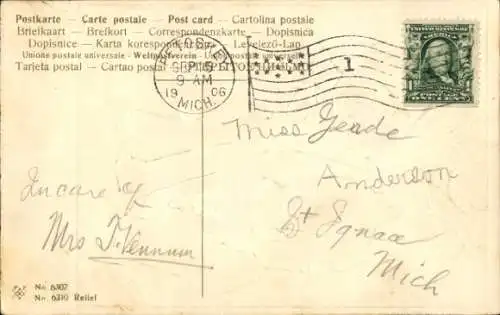 Postkarte - Carte postale - Post card - Cartolina postale
Briefkaart - Brefkort - Correspondenzkarte - Dopisnica
Dopisnice - Karta korespondencyjna - Levelező-Lap
Unione postale universale - Weltpostverein - Union postale universelle
Tarjeta postal - Cartao postal
SEP
9 AM
19 06
MICH.
1
Miss
Anderson
St Ignace
Mich
In care of
Mrs T. Vennum
No. 6307
No. 6310 Relief